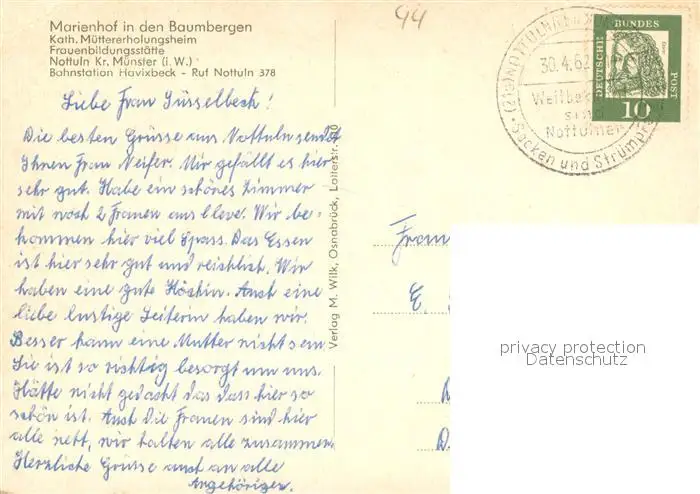 Marienhof in den Baumbergen
Kath. Müttererholungsheim
Frauenbildungsstätte
Nottuln Kr. Münster (i. W.)
Bahnstation Havixbeck - Ruf Nottuln 378
44
Liebe Frau Süsselbeck!
Die besten Grüsse aus Nottuln sendet
Ihnen Frau Neifer. Mir gefällt es hier
sehr gut. Habe ein schönes Zimmer
mit noch 2 Frauen aus Cleve. Wir be-
kommen hier viel Spass. Das Essen
ist hier sehr gut und reichlich. Wir
haben eine gute Köchin. Auch eine
liebe lustige Leiterin haben wir.
Besser kann eine Mutter nicht sein
Sie ist so richtig besorgt um uns.
Hätte nicht gedacht das dass hier so
schön ist. Auch die Frauen sind hier
alle nett, wir halten alle zusammen.
Herzliche Grüsse auch an alle
Angehörigen.
Verlag M. Wilk, Osnabrück, Lotterstr.
30.4.62
Weltbek
Nottulner
Socken und Strümpf
DEUTSCHE BUNDES POST
10
Frau
E.
privacy protection
Datenschutz